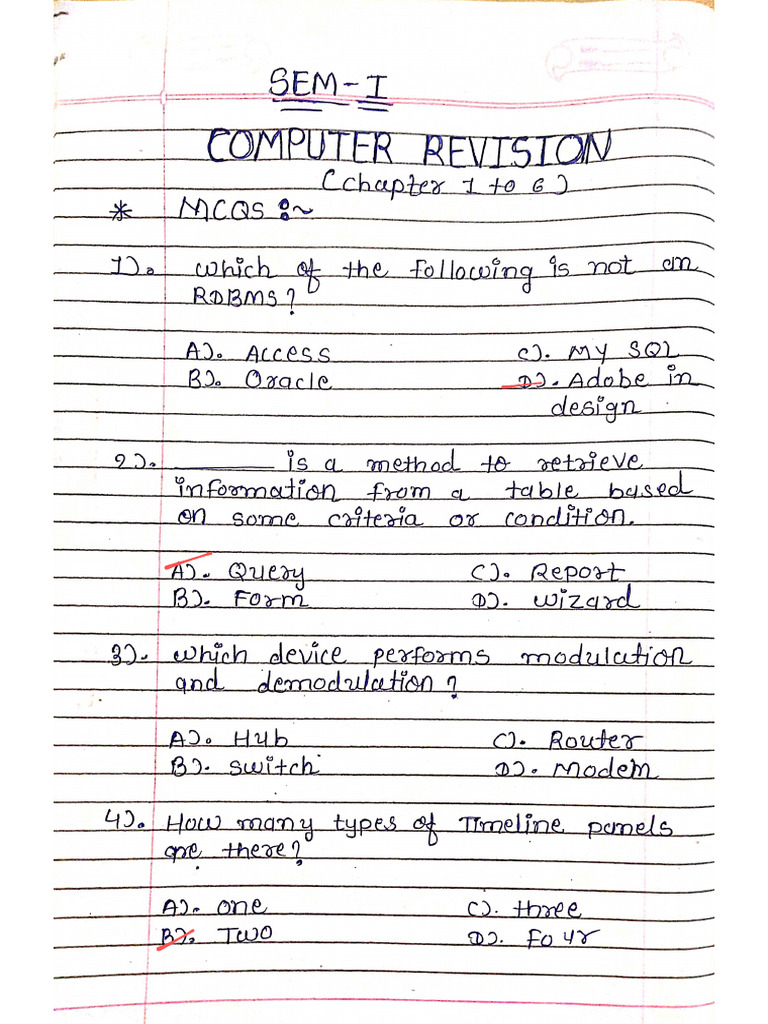 SEM-I
COMPUTER REVISION
(chapter 1 to 6)
* MCQS :~
1). which of the following is not an
RDBMS?
A). Access C). My SQL
B). Oracle D). Adobe in
design
2). ________ is a method to retrieve
information from a table based
on some criteria or condition.
A). Query C). Report
B). Form D). wizard
3). which device performs modulation
and demodulation?
A). Hub C). Router
B). switch D). Modem
4). How many types of Timeline panels
are there?
A). one C). three
B). Two D). Four